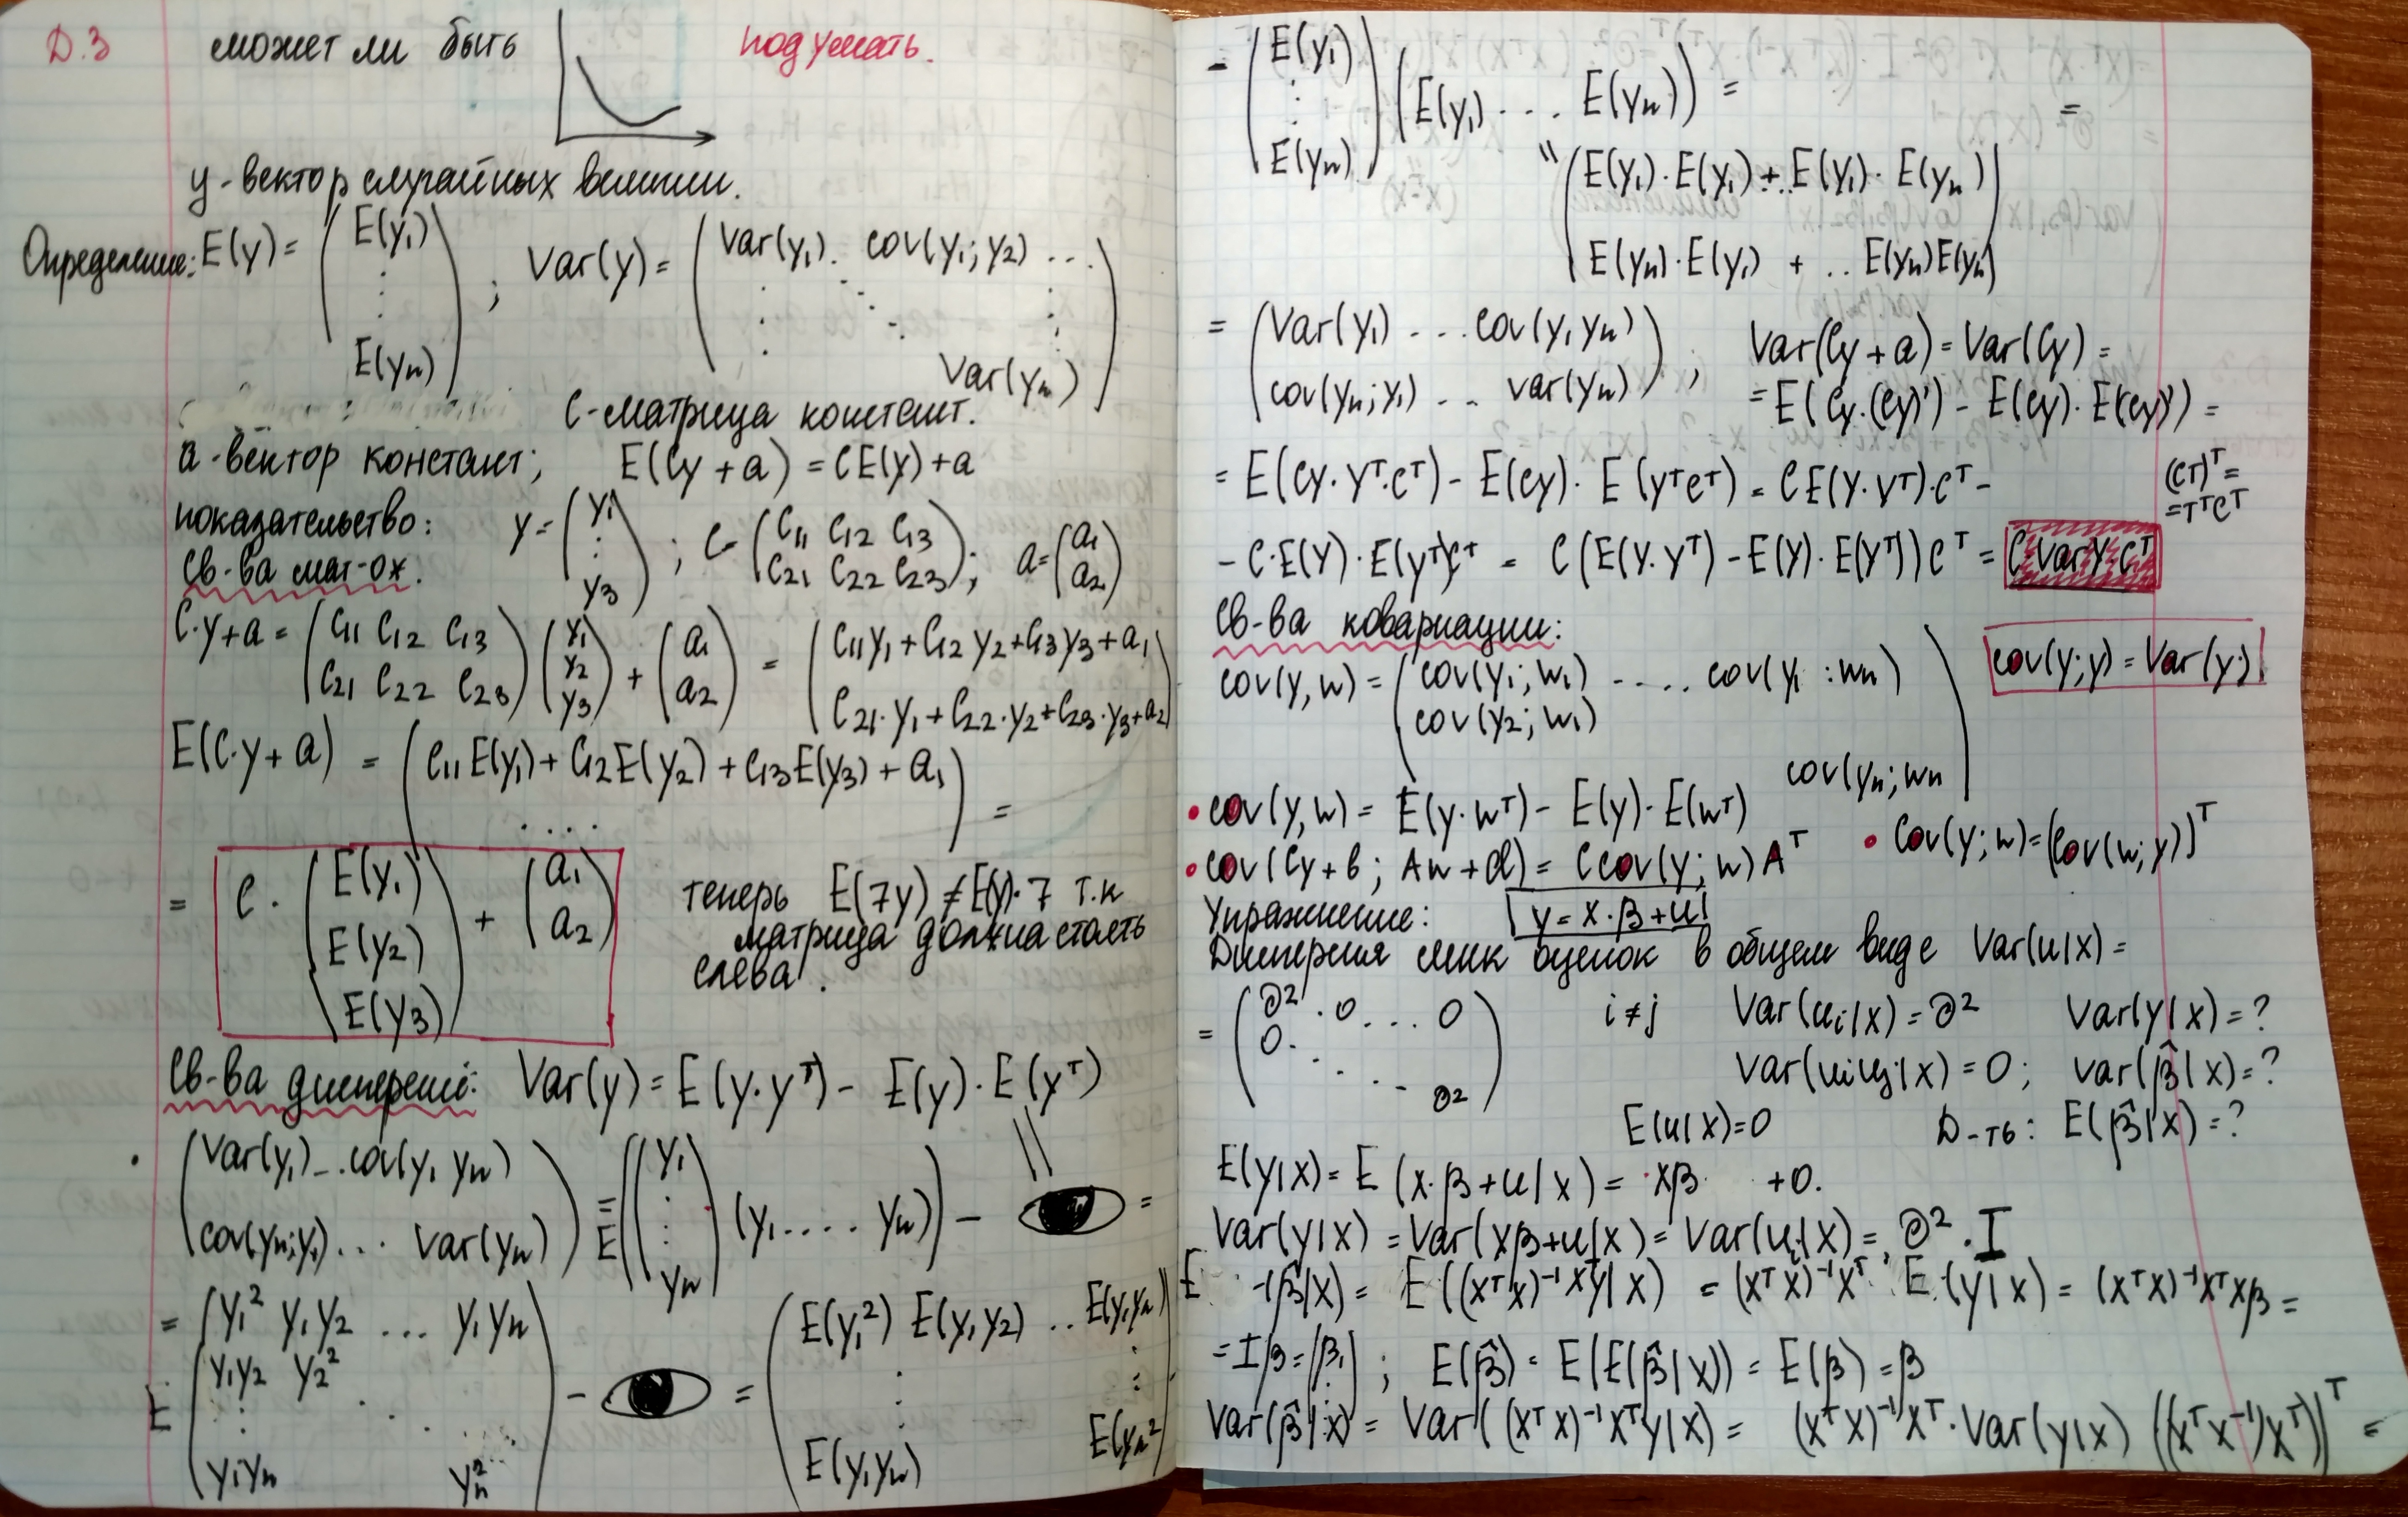 Д.З может ли быть подумать.
y-вектор случайных величин.
Определение: E(y) = (E(y₁) ⋮ E(yn)) ; Var(y) = (Var(y₁) . cov(y₁; y₂) ... Var(yn))
C-матрица констант.
a-вектор констант; E(Cy + a) = CE(y) + a
показательство: y = (y₁ ⋮ y₃) ; C = (C₁₁ C₁₂ C₁₃ C₂₁ C₂₂ C₂₃) ; a = (a₁ a₂)
Св-ва мат-ож.
C·y + a = (C₁₁ C₁₂ C₁₃ C₂₁ C₂₂ C₂₃) (y₁ y₂ y₃) + (a₁ a₂) = (C₁₁y₁ + C₁₂y₂ + C₁₃y₃ + a₁ C₂₁·y₁ + C₂₂·y₂ + C₂₃·y₃ + a₂)
E(C·y + a) = (C₁₁E(y₁) + C₁₂E(y₂) + C₁₃E(y₃) + a₁ ....) =
= C · (E(y₁) E(y₂) E(y₃)) + (a₁ a₂)
теперь E(7y) ≠ E(y)·7 т.к
матрица должна стоять
слева.
Св-ва дисперсий: Var(y) = E(y·yᵀ) − E(y)·E(yᵀ)
(Var(y₁) ... cov(y₁ yn) cov(yn; y₁) ... Var(yn)) = E((y₁ ⋮ yn) (y₁ .... yn)) − =
= E (y₁² y₁y₂ ... y₁yn y₁y₂ y₂² ⋮ y₁yn yn²) − = (E(y₁²) E(y₁y₂) .. E(y₁yn) ⋮ E(y₁yn) E(yn²))
− (E(y₁) ⋮ E(yn)) (E(y₁) ... E(yn)) = =
" (E(y₁)·E(y₁) + .. E(y₁)·E(yn)
E(yn)·E(y₁) + .. E(yn)E(yn))
= (Var(y₁) ... cov(y₁ yn) cov(yn; y₁) .. var(yn)) ; Var(Cy + a) = Var(Cy) =
= E(Cy·(Cy)') − E(Cy)·E((Cy)') =
= E(Cy·yᵀ·Cᵀ) − E(Cy)·E(yᵀCᵀ) = CE(Y·Yᵀ)·Cᵀ − (CT)ᵀ = =TᵀCᵀ
− C·E(Y)·E(yᵀ)Cᵀ = C(E(Y·Yᵀ) − E(Y)·E(Yᵀ))Cᵀ = C VarY Cᵀ
Св-ва ковариации:
cov(y, w) = (cov(y₁; w₁) ..... cov(y₁ : wn) cov(y₂; w₁) cov(yn; wn) cov(y; y) = Var(y)
• cov(y, w) = E(y·wᵀ) − E(y)·E(wᵀ)
• cov(Cy + b ; Aw + d) = Ccov(y; w)Aᵀ • Cov(y; w) = (Cov(w; y))ᵀ
Упражнение: y = X·β + u
Дисперсия мнк оценок в общем виде Var(u|X) =
= (∂² . 0 ... 0 0 . ... ∂²) i ≠ j Var(ui|X) = ∂² Var(y|X) = ?
Var(uiuj|X) = 0 ; var(β̂|X) = ?
E(u|X) = 0 Д-ть: E(β̂|X) = ?
E(y|X) = E(X·β + u|X) = Xβ + 0.
Var(y|X) = Var(Xβ + u|X) = Var(ui|X) = ∂²·I
E (β̂|X) = E((XᵀX)⁻¹Xᵀy|X) = (XᵀX)⁻¹Xᵀ·E(y|X) = (XᵀX)⁻¹XᵀXβ =
= Iβ = (β₁ ⋮) ; E(β̂) = E(E(β̂|X)) = E(β) = β
Var(β̂|X) = Var((XᵀX)⁻¹Xᵀy|X) = (XᵀX)⁻¹Xᵀ·Var(y|X) ((XᵀX⁻¹)Xᵀ)ᵀ =